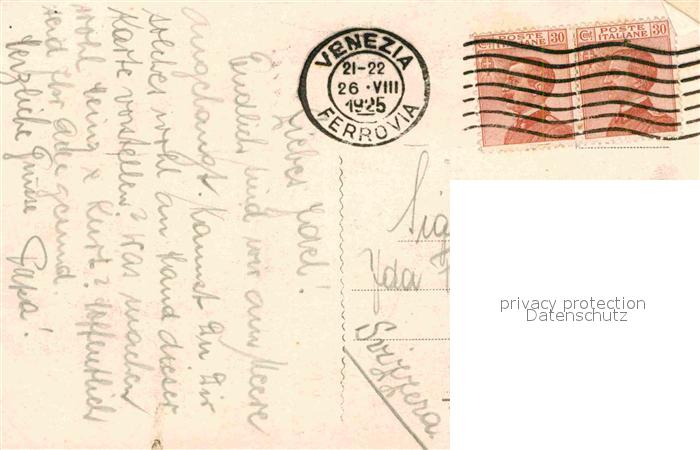 Liebes Edel!
Endlich sind wir am Meere
angelangt. Kannst Du Dir
solches wohl an Hand dieser
Karte vorstellen? Was machen
wohl & Kurt? Hoffentlich
seid Ihr alle gesund
Herzliche Grüsse Papa!
VENEZIA
21-22
26 · VIII
1925
FERROVIA
POSTE ITALIANE 30
POSTE ITALIANE 30
Sig
Ida
Svizzera
privacy protection
Datenschutz